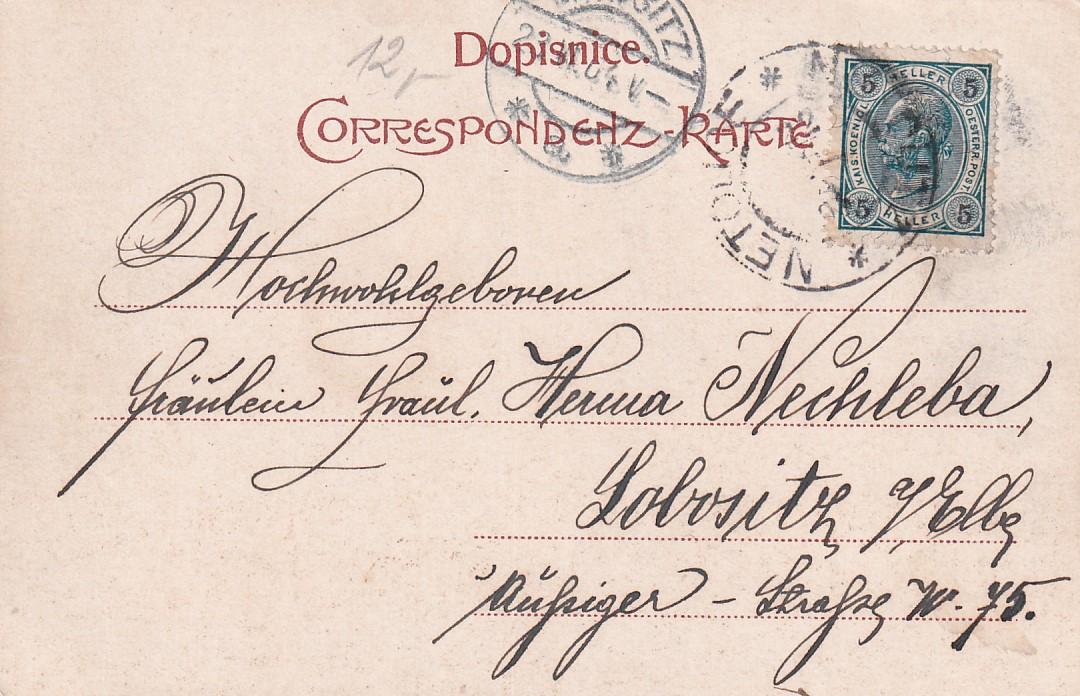 12,-
Dopisnice.
CORRESPONDENZ-KARTE
KAIS. KOENIGL. OESTERR. POST.
5 HELLER 5
5 HELLER 5
NETOL
Hochwohlgeboren
Fräulein Fräul. Herma Nechleba,
Lobositz, a/Elbe
Außiger - Straße N. 75.